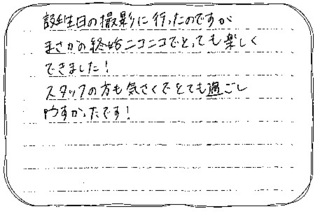 誕生日の撮影に行ったのですが
まさかの終始ニコニコでとっても楽しく
できました!
スタッフの方も気さくでとても過ごし
やすかったです!